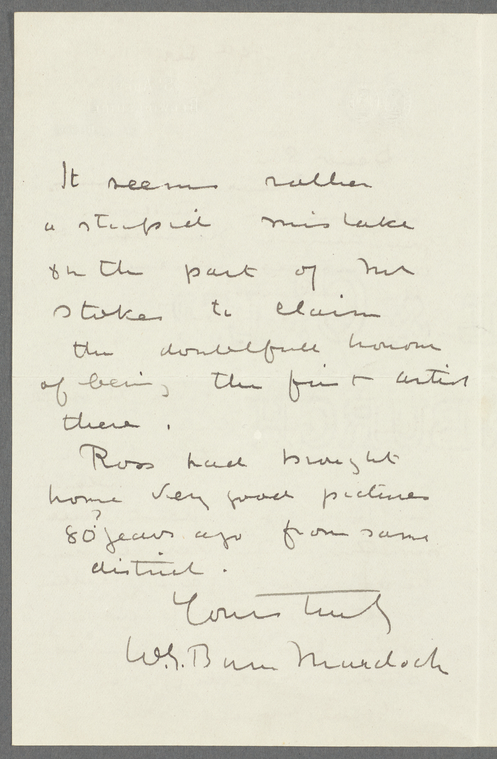 It seems rather
a stupid mistake
on the part of Mr
Stokes to claim
the doubtfull honour
of being the first artist
there.
Ross had brought
home very good pictures
80? years ago from same
district.
Yours truly
W.G. Burn Murdoch